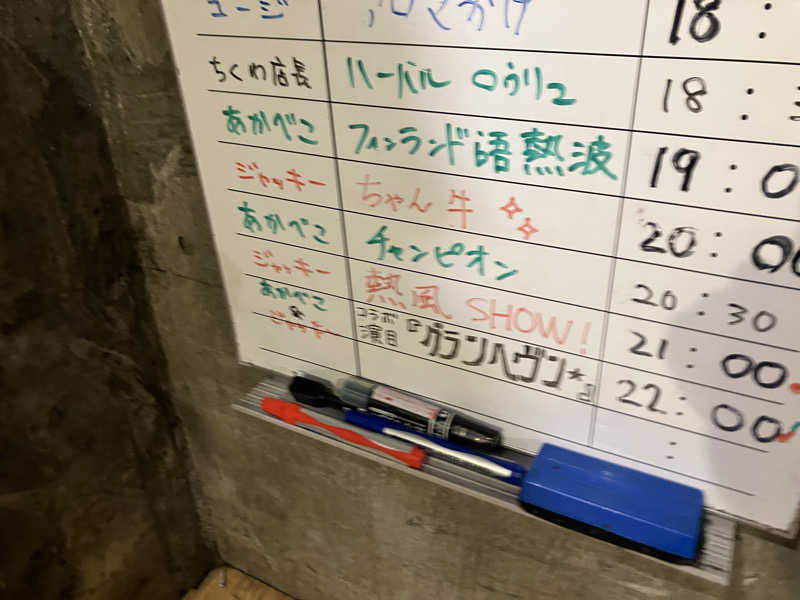 ユージ アロマかけ 18:
ちくわ店長 ハーバル ロウリュ 18:3
あかべこ フィンランド語熱波 19:0
ジャッキー ちゃん牛 20:00
あかべこ チャンピオン 20:30
ジャッキー 熱風 SHOW! 21:00
あかべこ & ジャッキー コラボ演目『グランヘヴン*』 22:00
: